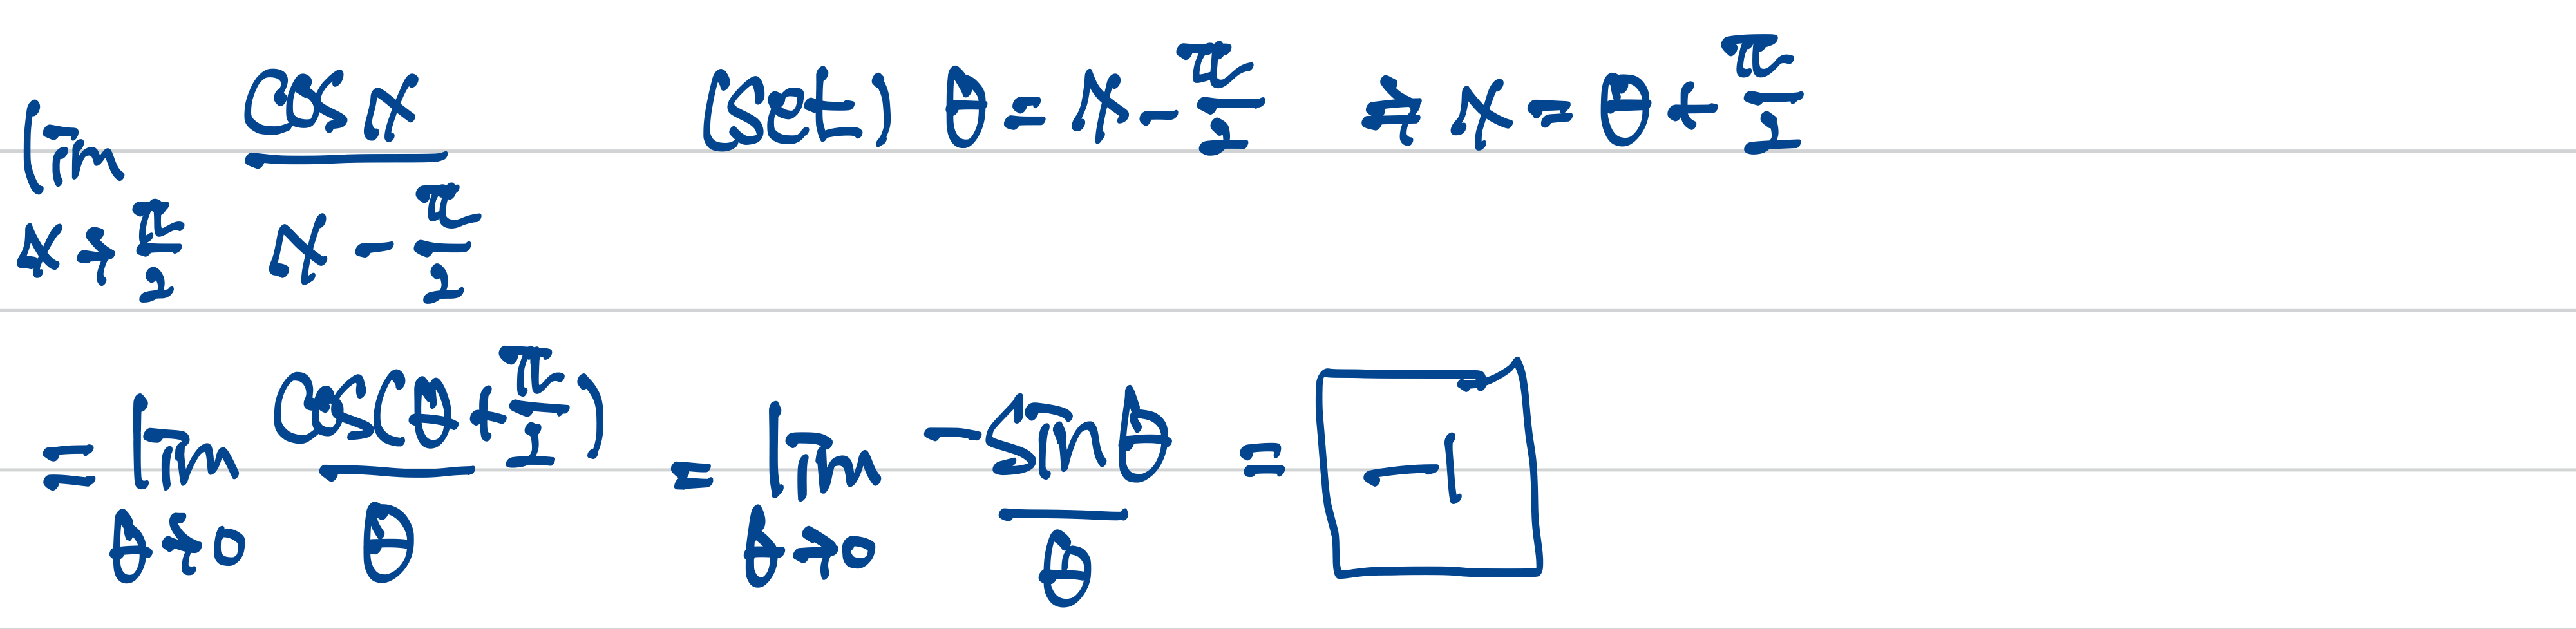 lim_{x→π/2} cos x / (x - π/2) (set) θ = x - π/2 ⇒ x = θ + π/2
= lim_{θ→0} cos(θ + π/2) / θ = lim_{θ→0} -sinθ / θ = -1